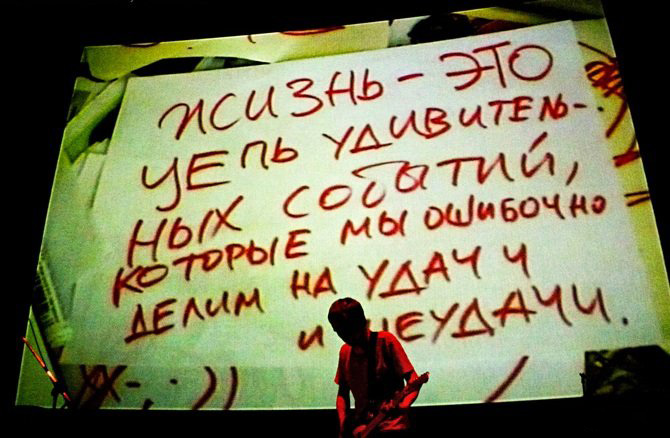 ЖИЗНЬ - ЭТО
ЦЕПЬ УДИВИТЕЛЬ-
НЫХ СОБЫТИЙ,
КОТОРЫЕ МЫ ОШИБОЧНО
ДЕЛИМ НА УДАЧИ
И НЕУДАЧИ.